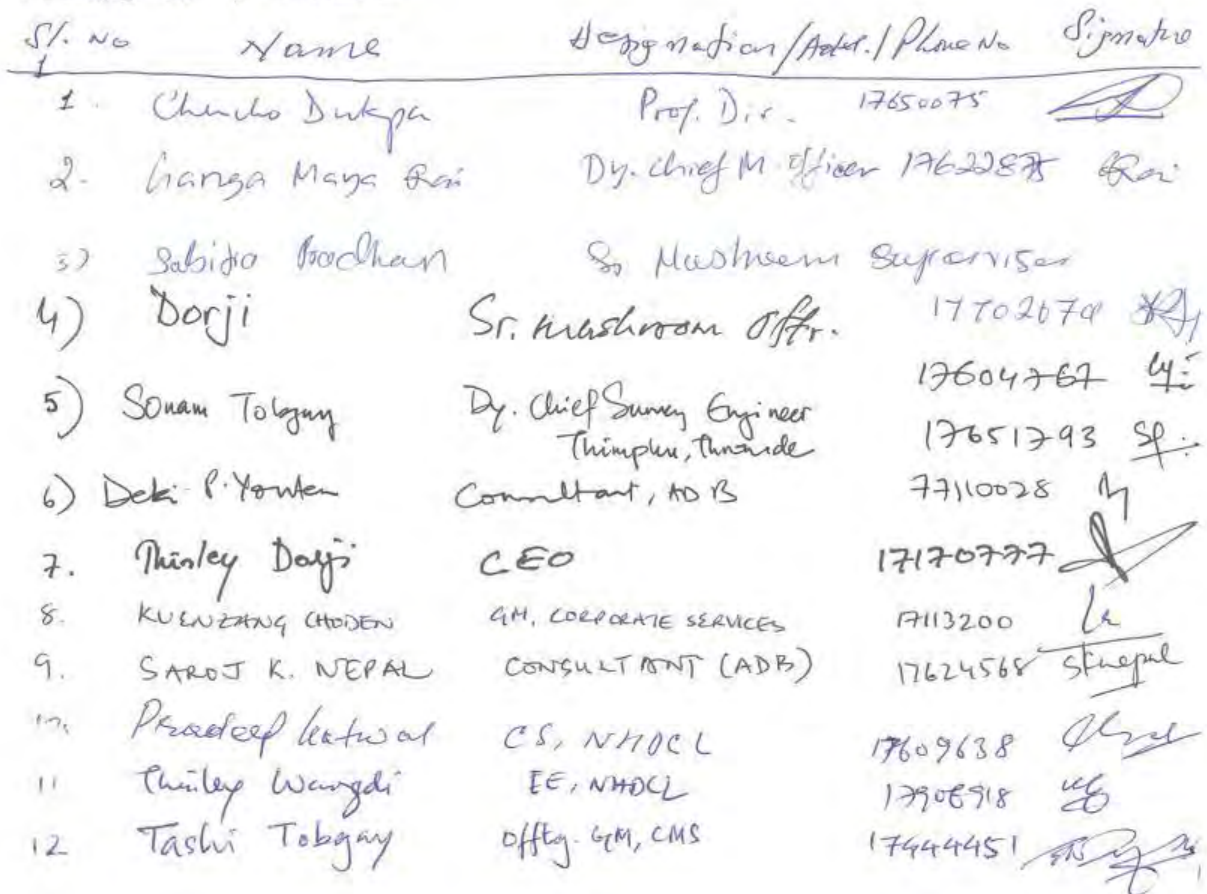 Sl. No Name Designation/Addr./Phone No Signature
1. Chencho Dukpa Prof. Dir. 17650075
2. Ganga Maya Rai Dy. Chief M. Officer 17622875 Rai
3) Sabitra Pradhan Sr Mushroom Supervisor
4) Dorji Sr. Mushroom Offr. 1770267
17604767
5) Sonam Tobgay Dy. Chief Survey Engineer
Thimphu, Thromde 17651793
6) Deki P. Yonten Consultant, ADB 77110028
7. Thinley Dorji CEO 17170777
8. KUENZANG CHODEN GM, CORPORATE SERVICES 17113200
9. SAROJ K. NEPAL CONSULTANT (ADB) 17624568 SKnepal
10. Pradeep Katwal CS, NHDCL 17609638
11 Thinley Wangdi EE, NHDCL 17906918
12 Tashi Tobgay Offtg. GM, CMS 17444451